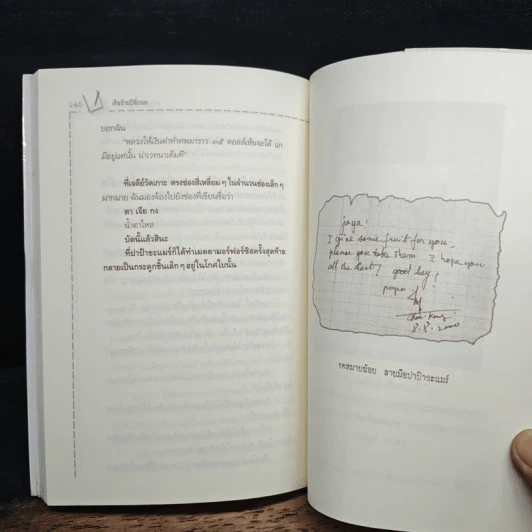 บอกฉัน
"หลวงให้เงินค่าทำศพมาราว ๓๕ ดอลล์เห็นจะได้ แก
มีอยู่แค่นั้น น่าเวทนาเต็มที"
ที่เจดีย์วัดเกาะ ตรงช่องสี่เหลี่ยม ๆ ในจำนวนช่องเล็ก ๆ
มากมาย ฉันมองจ้องไปยังช่องที่เขียนชื่อว่า
ลา เจีย กง
น้ำตาไหล
บัดนี้แล้วสินะ
ที่ปาป้าขะแมร์ก็ได้ทำเมตตามอร์ฟอร์ซิสครั้งสุดท้าย
กลายเป็นกระดูกชิ้นเล็ก ๆ อยู่ในโกศใบนั้น
jaya!
I give some fruit for you,
please you take them I hope you
all the Best! good hay!
papa
8.8.2000
จดหมายน้อย ลายมือปาป้าขะแมร์